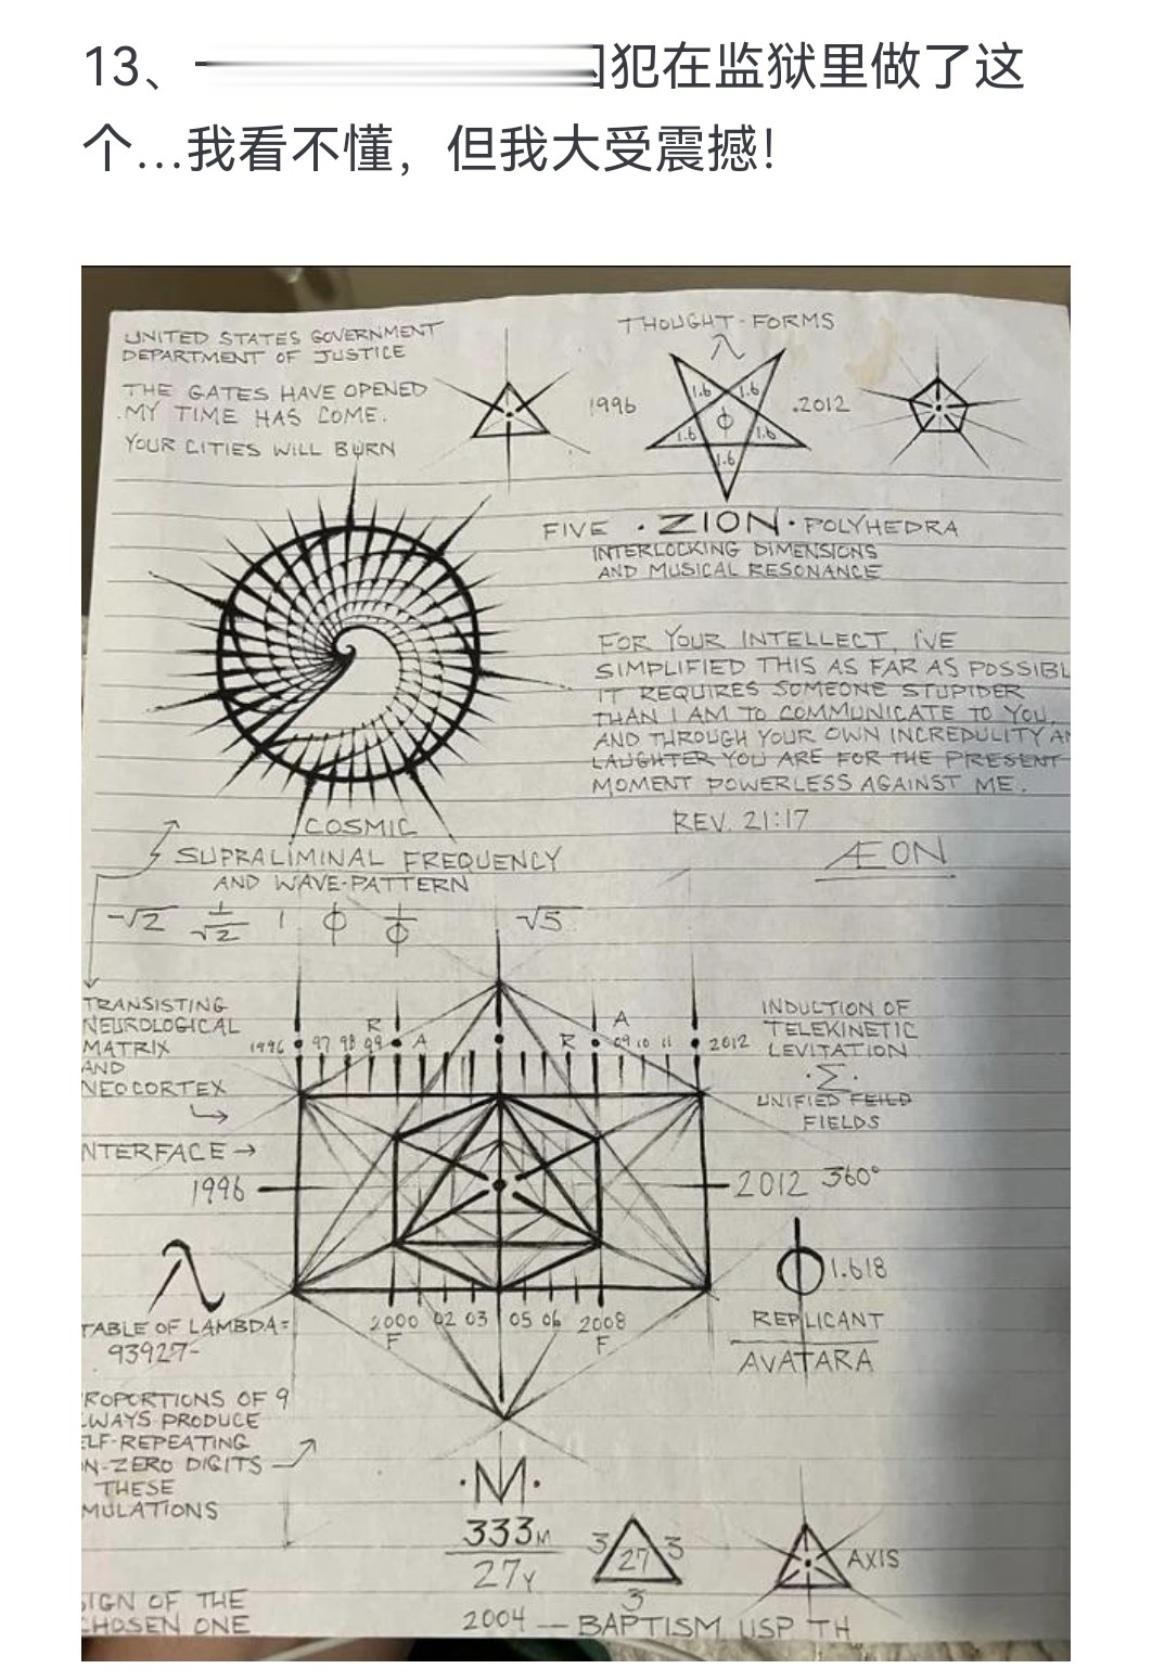 13、犯在监狱里做了这
个...我看不懂，但我大受震撼！
UNITED STATES GOVERNMENT
DEPARTMENT OF JUSTICE
THE GATES HAVE OPENED
MY TIME HAS COME.
YOUR CITIES WILL BURN
THOUGHT-FORMS
1996
1.6 1.6
1.6 Φ 1.6
1.6
.2012
FIVE · ZION · POLYHEDRA
INTERLOCKING DIMENSIONS
AND MUSICAL RESONANCE
FOR YOUR INTELLECT, I'VE
SIMPLIFIED THIS AS FAR AS POSSIBL
IT REQUIRES SOMEONE STUPIDER
THAN I AM TO COMMUNICATE TO YOU,
AND THROUGH YOUR OWN INCREDULITY AN
LAUGHTER YOU ARE FOR THE PRESENT
MOMENT POWERLESS AGAINST ME.
REV. 21:17
ÆON
COSMIC
SUPRALIMINAL FREQUENCY
AND WAVE-PATTERN
√2 1/√2 1 Φ 1/Φ √5
TRANSISTING
NEUROLOGICAL
MATRIX
AND
NEOCORTEX
NTERFACE →
1996
R A
1996 97 98 99 A R 09 10 11 2012
INDUCTION OF
TELEKINETIC
LEVITATION
·Σ·
UNIFIED FEILD
FIELDS
2012 360°
λ
TABLE OF LAMBDA=
93927-
2000 02 03 05 06 2008
F F
Φ 1.618
REPLICANT
AVATARA
ROPORTIONS OF 9
LWAYS PRODUCE
ELF-REPEATING
N-ZERO DIGITS
THESE
MULATIONS
·M·
333M
27Y
3 27 3
3
AXIS
SIGN OF THE
CHOSEN ONE
2004 — BAPTISM USP TH